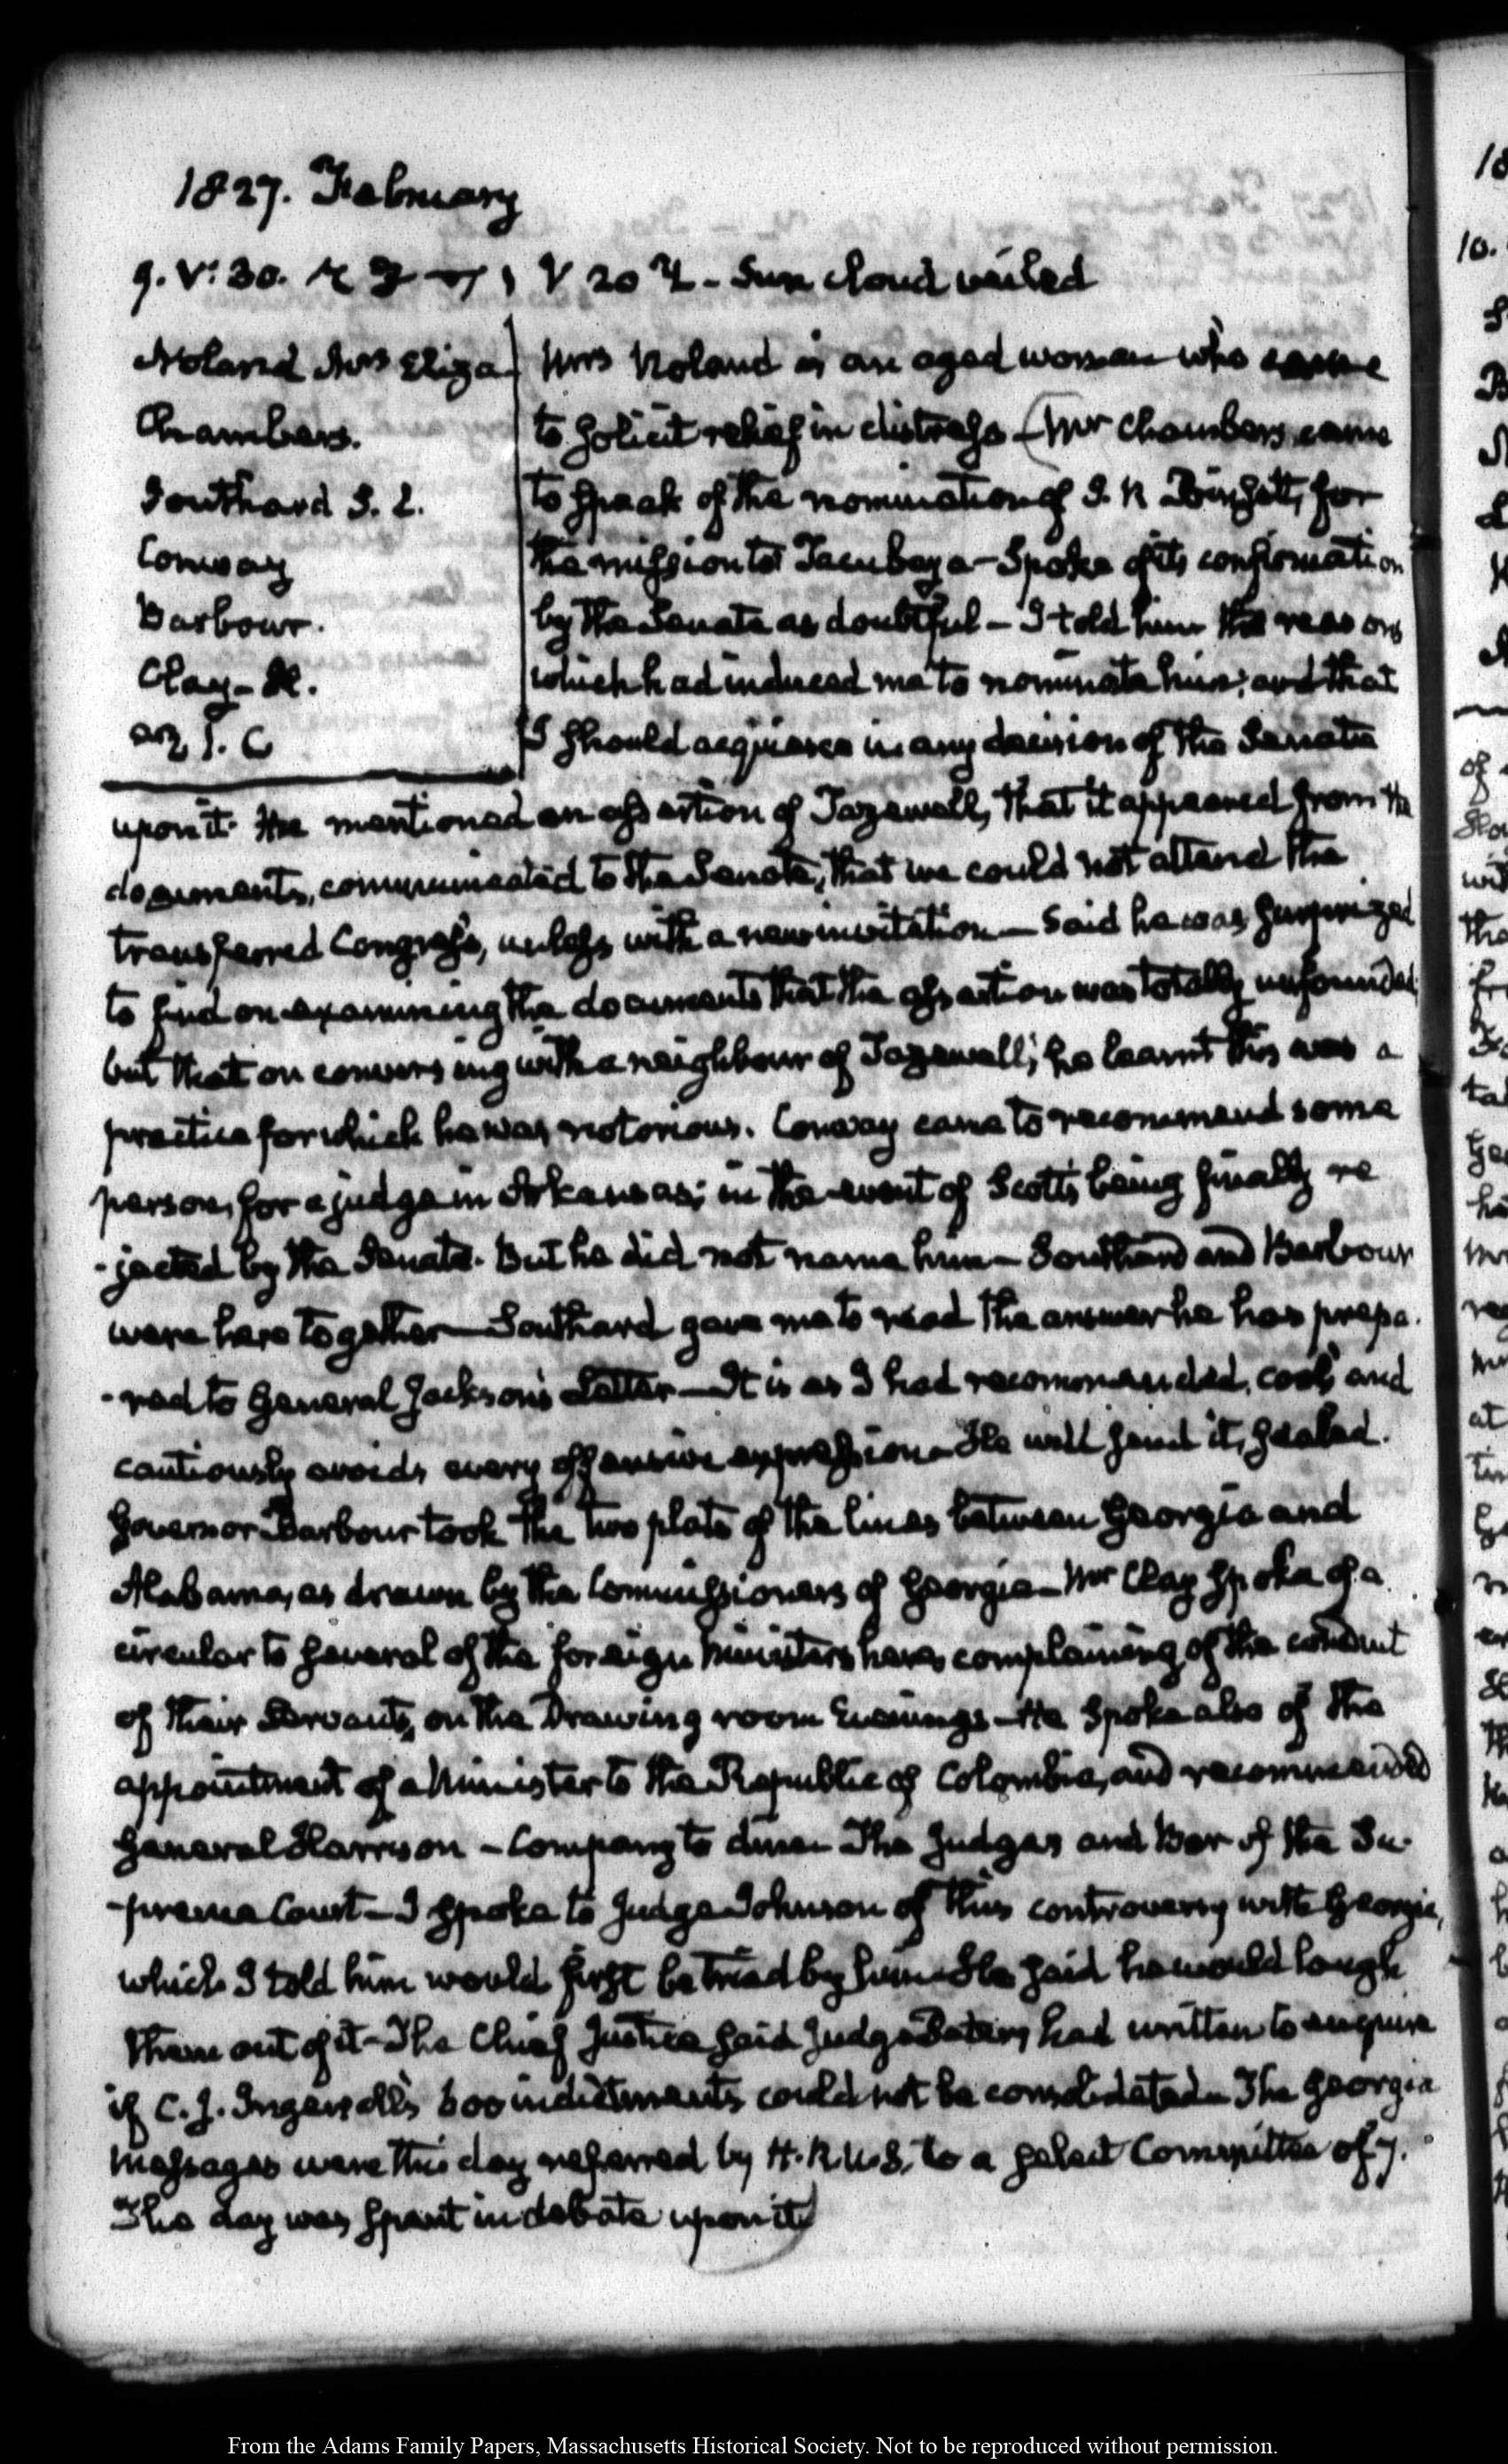 1827. February
9. V: 30. V 20 - Sun cloud veiled
Noland Mrs Eliza
Chambers.
Southard S. L.
Conway
Barbour.
Clay - H.
Mrs Noland is an aged woman who came
to solicit relief in distress - (Mr Chambers came
to speak of the nomination of J. R Poinsett, for
the mission to Tacubaya - Spoke of its confirmation
by the Senate as doubtful - I told him the reasons
which had induced me to nominate him; and that
I should acquiesce in any decision of the Senate
upon it. He mentioned an assertion of Tazewell, that it appeared from the
documents, communicated to the Senate, that we could not attend the
transferred Congress, unless with a new invitation - Said he was surprized
to find on examining the documents that the assertion was totally unfounded,
but that on conversing with a neighbour of Tazewell; he learnt this was a
practice for which he was notorious. Conway came to recommend some
person, for a judge in Arkansas; in the event of Scott's being finally re
-jected by the Senate. But he did not name him - Southard and Barbour
were here together - Southard gave me to read the answer he has prepa-
-red to General Jackson's Letter - It is as I had recommended, cool, and
cautiously avoids every offensive expression - He will send it, sealed.
Governor Barbour took the two plats of the lines between Georgia and
Alabama, as drawn by the Commissioners of Georgia - Mr Clay spoke of a
circular to several of the foreign Ministers here, complaining of the conduct
of their Servants, on the Drawing room Evenings - He spoke also of the
appointment of a Minister to the Republic of Colombia, and recommended
General Harrison - Company to dine - The Judges and Bar of the Su-
-preme Court - I spoke to Judge Johnson of this controversy with Georgia,
which I told him would first be tried by him - He said he would laugh
them out of it - The Chief Justice said Judge had written to enquire
if C. J. Ingersoll's 600 indictments could not be consolidated - The Georgia
Messages were this day referred by H. R. U. S. to a select Committee of 7.
The day was spent in debate upon it)
From the Adams Family Papers, Massachusetts Historical Society. Not to be reproduced without permission.